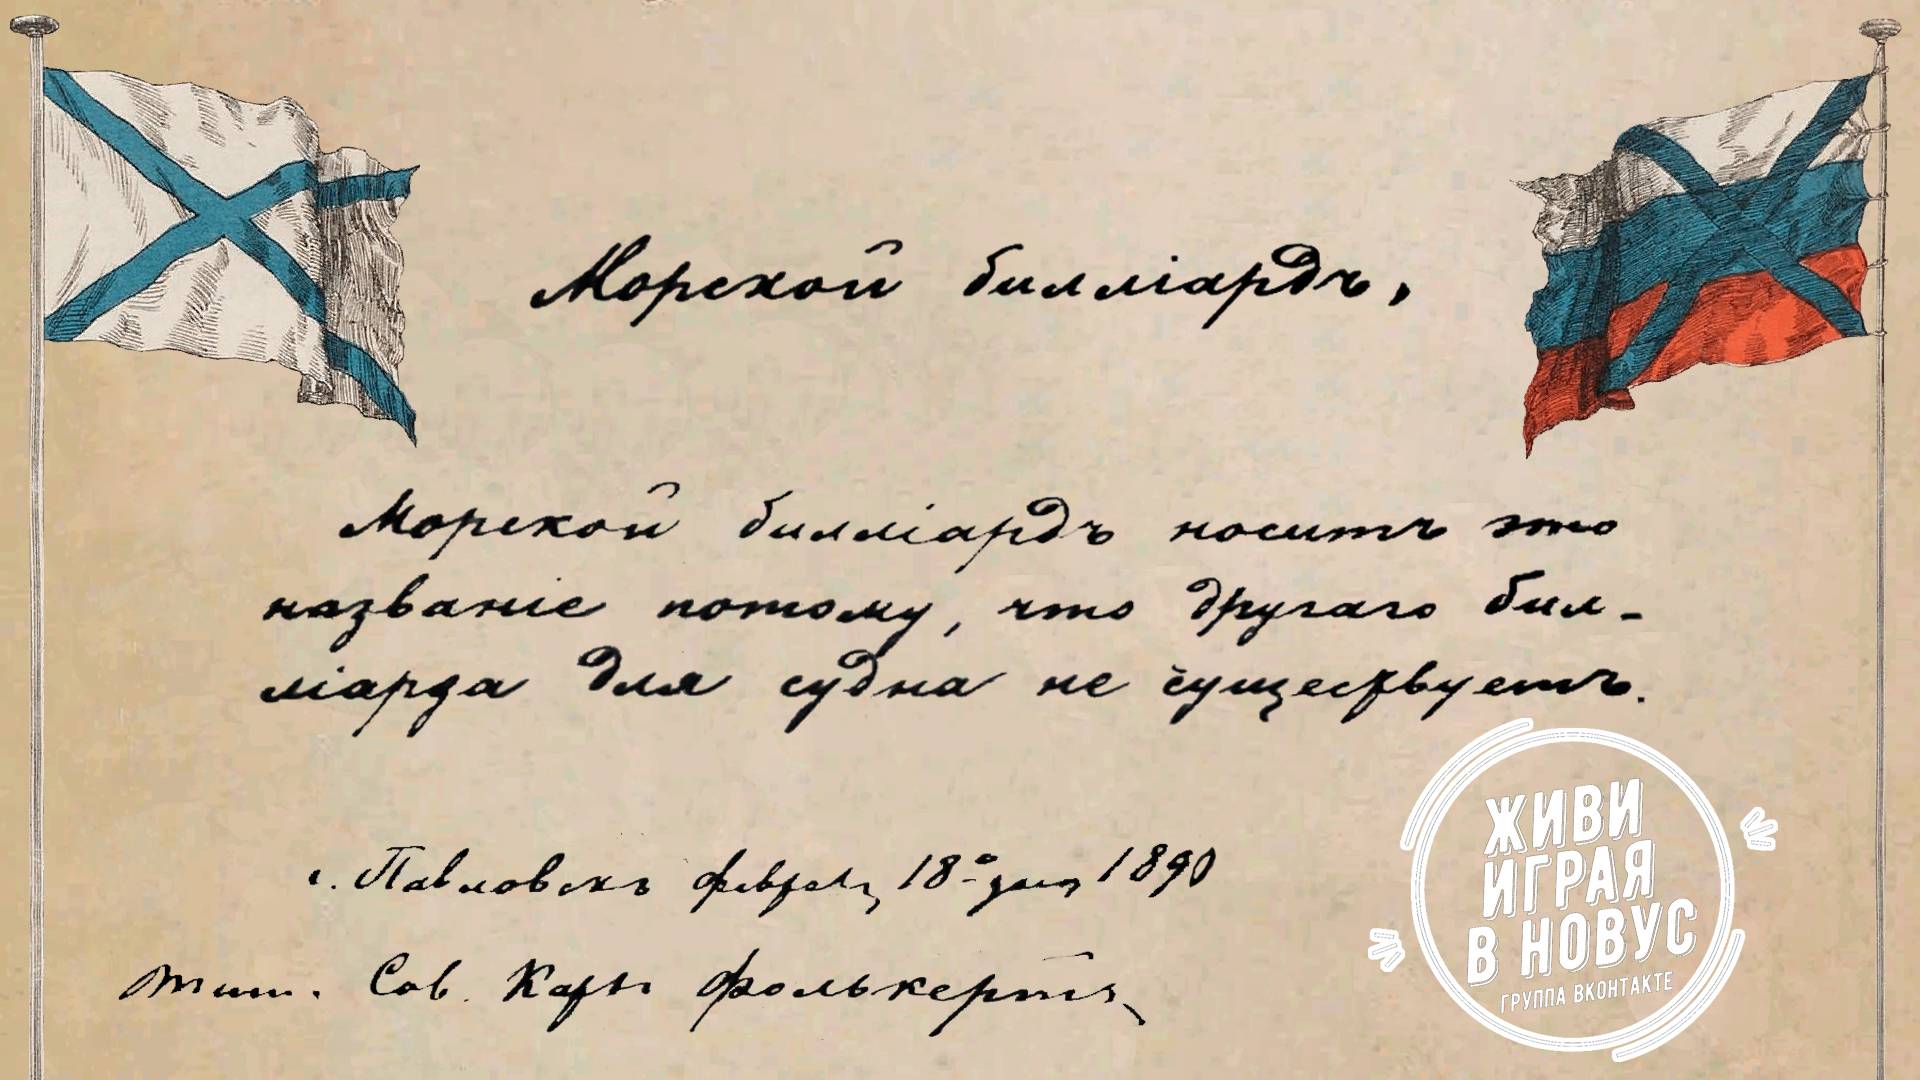 Морской билліардъ,
Морской билліардъ носитъ это
названіе потому, что другаго бил-
ліарда для судна не существуетъ.
г. Павловскъ февраля 18го дня 1890
Тит. Сов. Карлъ Фолькертъ
ЖИВИ
ИГРАЯ
В НОВУС
ГРУППА ВКОНТАКТЕ